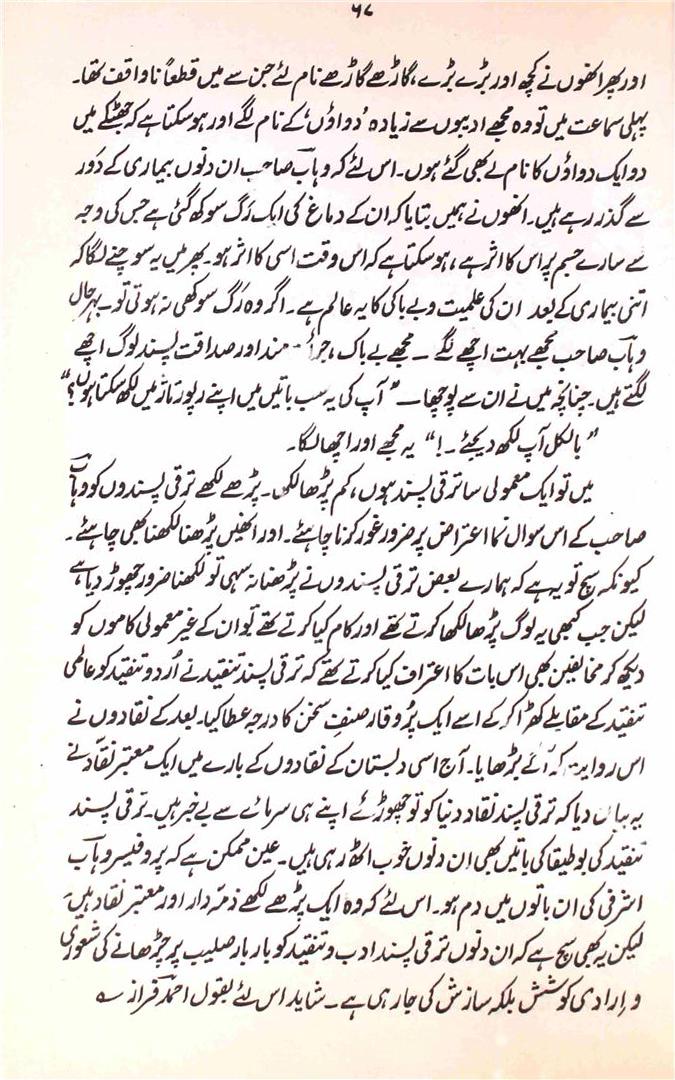 ۶۷
اور پھر انھوں نے کچھ اور بڑے بڑے، گاڑھے گاڑھے نام لئے جن سے میں قطعاً ناواقف تھا۔
پہلی سماعت میں تو وہ مجھے ادیبوں سے زیادہ ’دواؤں‘ کے نام لگے اور ہوسکتا ہے کہ جھٹکے میں
دو ایک دواؤں کا نام لے بھی گئے ہوں۔ اس لئے کہ وہاب صاحب ان دنوں بیماری کے دَور
سے گذر رہے ہیں۔ انھوں نے ہمیں بتایا کہ ان کے دماغ کی ایک رَگ سوکھ گئی ہے جس کی وجہ
سے سارے جسم پر اس کا اثر ہے، ہوسکتا ہے کہ اس وقت اسی کا اثر ہو۔ پھر میں یہ سوچنے لگا کہ
اتنی بیماری کے بعد ان کی علمیت و بے باکی کا یہ عالم ہے۔ اگر وہ رَگ سوکھی نہ ہوتی تو۔ بہرحال
وہاب صاحب مجھے بہت اچھے لگے ۔ مجھے بے باک، جرأت مند اور صداقت پسند لوگ اچھے
لگتے ہیں۔ چنانچہ میں نے ان سے پوچھا — ”آپ کی یہ سب باتیں میں اپنے رپورتاژ میں لکھ سکتا ہوں؟“
”بالکل آپ لکھ دیجئے۔!“ یہ مجھے اور اچھا لگا۔
میں تو ایک معمولی سا ترقی پسند ہوں، کم پڑھا لکھا۔ پڑھے لکھے ترقی پسندوں کو وہاب
صاحب کے اس سوال نما اعتراض پر ضرور غور کرنا چاہئے۔ اور انھیں پڑھنا لکھنا بھی چاہئے۔
کیونکہ سچ تو یہ ہے کہ ہمارے بعض ترقی پسندوں نے پڑھنا نہ سہی تو لکھنا ضرور چھوڑ دیا ہے
لیکن جب کبھی یہ لوگ پڑھا لکھا کرتے تھے اور کام کیا کرتے تھے تو ان کے غیر معمولی کاموں کو
دیکھ کر مخالفین بھی اس بات کا اعتراف کیا کرتے تھے کہ ترقی پسند تنقید نے اُردو تنقید کو عالمی
تنقید کے مقابلے کھڑا کر کے اسے ایک پُروقار صنفِ سخن کا درجہ عطا کیا۔ بعد کے نقادوں نے
اس روایت کو آگے بڑھایا۔ آج اسی دبستان کے نقادوں کے بارے میں ایک معتبر نقاد نے
یہ بیان دیا کہ ترقی پسند نقاد دنیا کو تو چھوڑئے اپنے ہی سرمائے سے بے خبر ہیں۔ ترقی پسند
تنقید کی بوطیقا کی باتیں بھی اِن دنوں خوب اٹھ رہی ہیں۔ عین ممکن ہے کہ پروفیسر وہاب
اشرفی کی ان باتوں میں دم ہو۔ اس لئے کہ وہ ایک پڑھے لکھے ذمہ دار اور معتبر نقاد ہیں،
لیکن یہ بھی سچ ہے کہ ان دنوں ترقی پسند ادب و تنقید کو بار بار صلیب پر چڑھانے کی شعوری
و ارادی کوشش بلکہ سازش کی جارہی ہے۔ شاید اس لئے بقول احمد فراز ؎